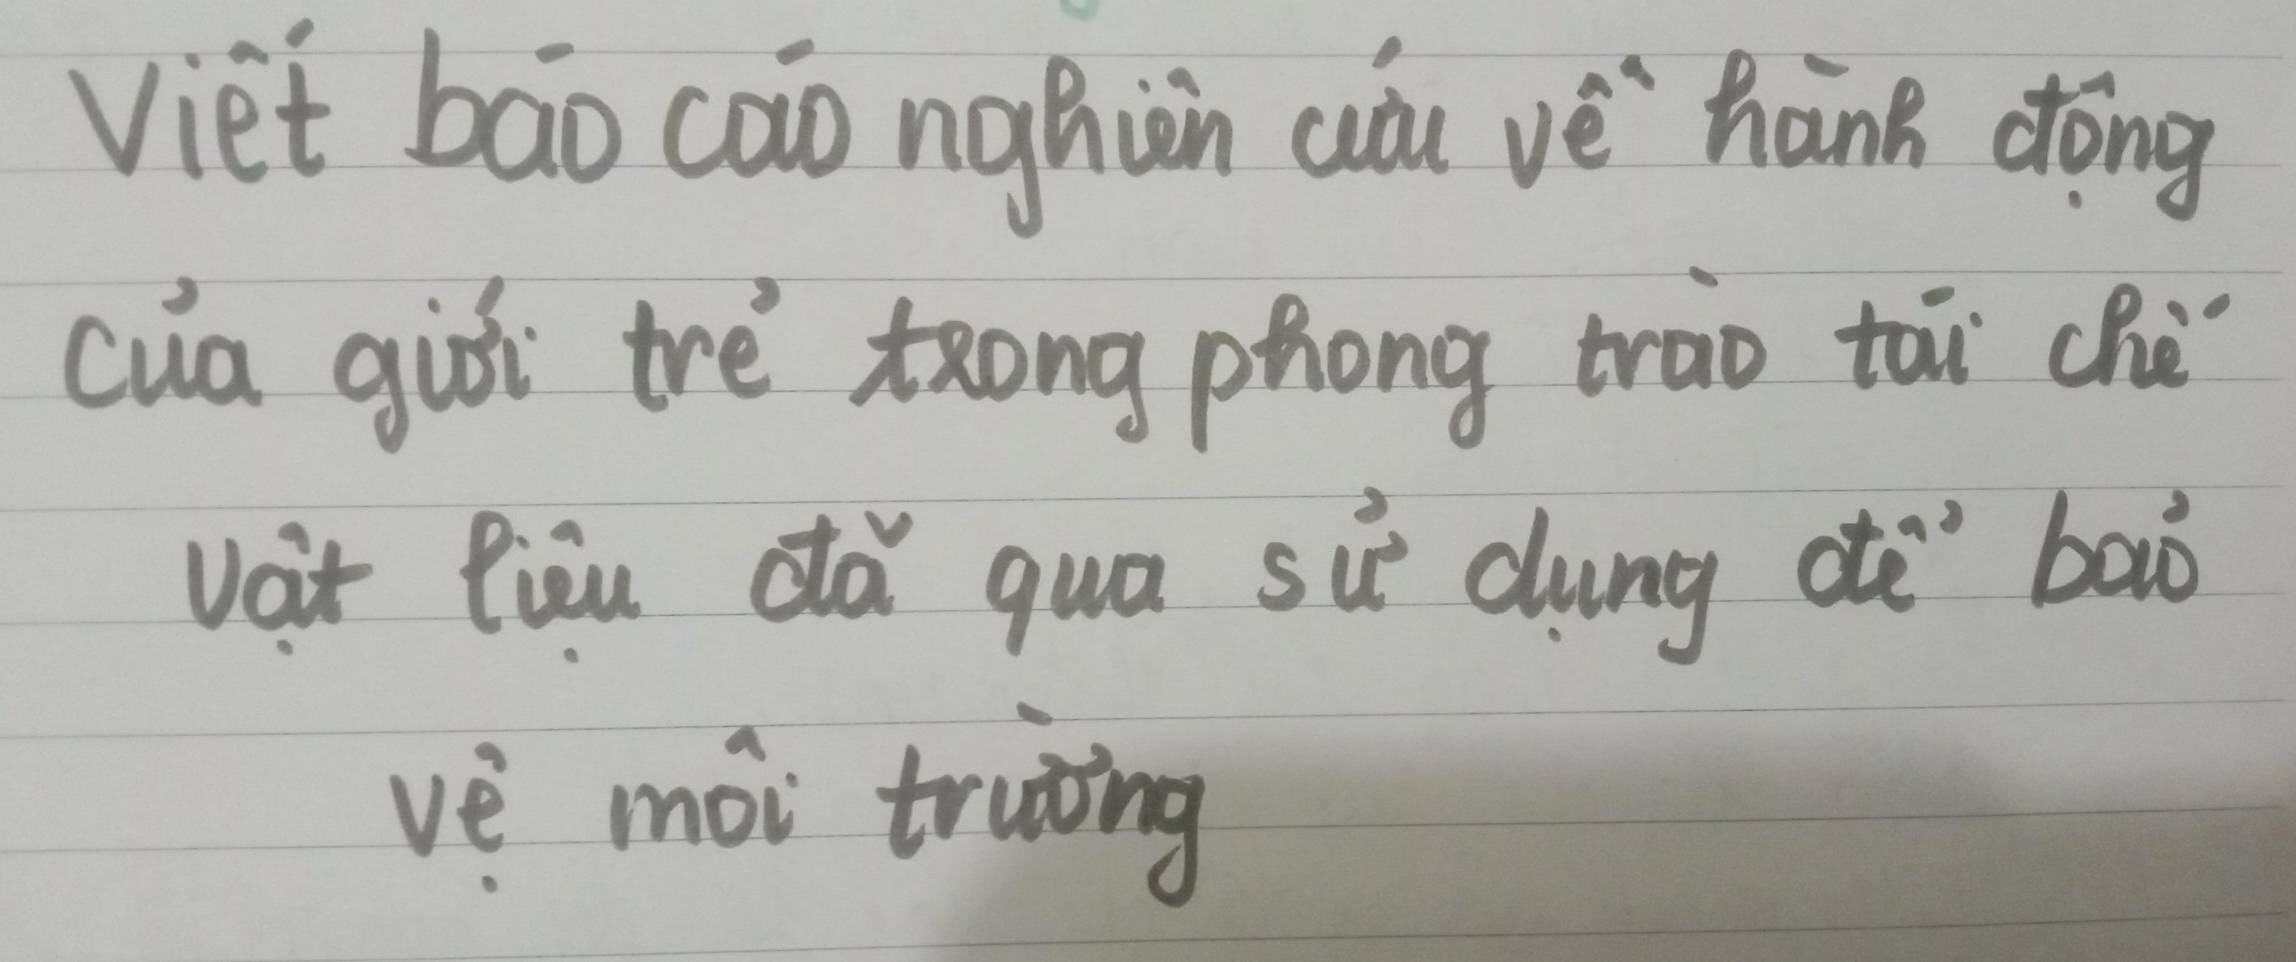 Viết báo cáo nghiên cứu về hành động
của giới trẻ trong phong trào tái chế
vật liệu đã qua sử dụng để bảo
vệ môi trường